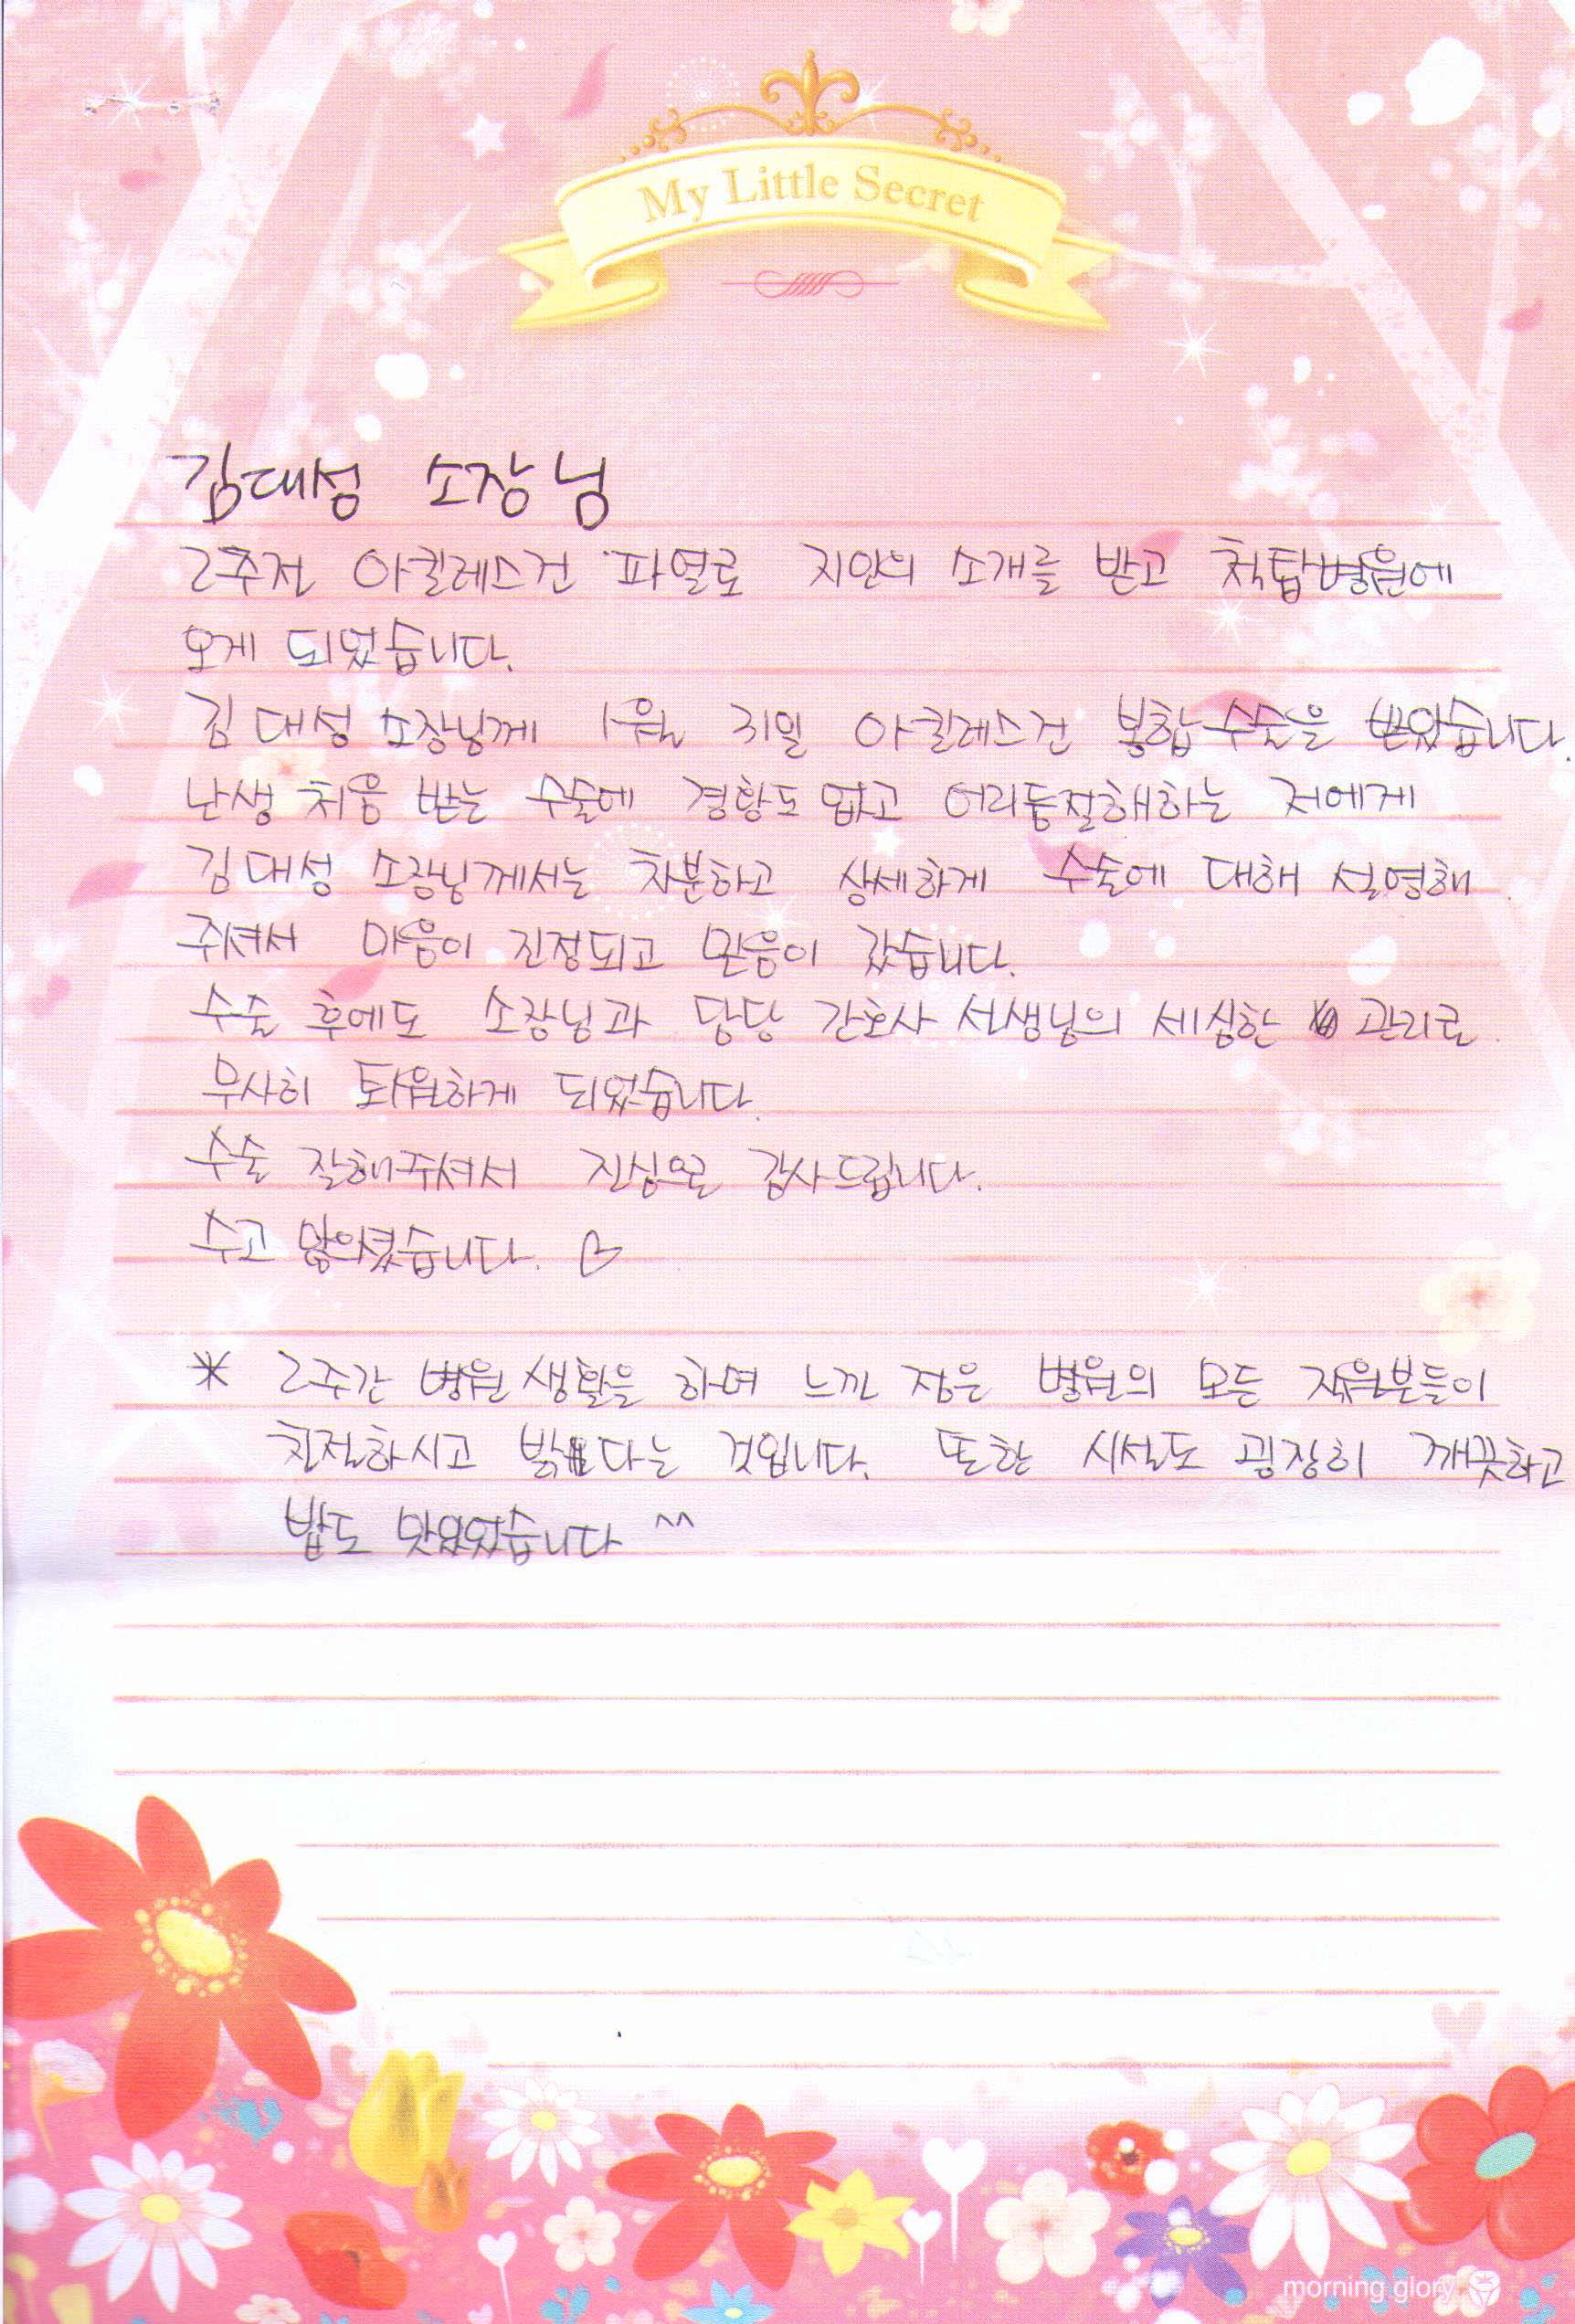 My Little Secret
김대성 소장님
2주전 아킬레스건 파열로 지인의 소개를 받고 척탑병원에
오게 되었습니다.
김대성 소장님께 1월 31일 아킬레스건 봉합수술을 받았습니다.
난생 처음 받는 수술에 경황도 없고 어리둥절해하는 저에게
김대성 소장님께서는 차분하고 상세하게 수술에 대해 설명해
주셔서 마음이 진정되고 믿음이 갔습니다.
수술 후에도 소장님과 담당 간호사 선생님의 세심한 관리로
무사히 퇴원하게 되었습니다.
수술 잘해주셔서 진심으로 감사드립니다.
수고 많으셨습니다. ♡
* 2주간 병원 생활을 하며 느낀 점은 병원의 모든 직원분들이
친절하시고 밝다는 것입니다. 또한 시설도 굉장히 깨끗하고
밥도 맛있었습니다 ^^
morning glory